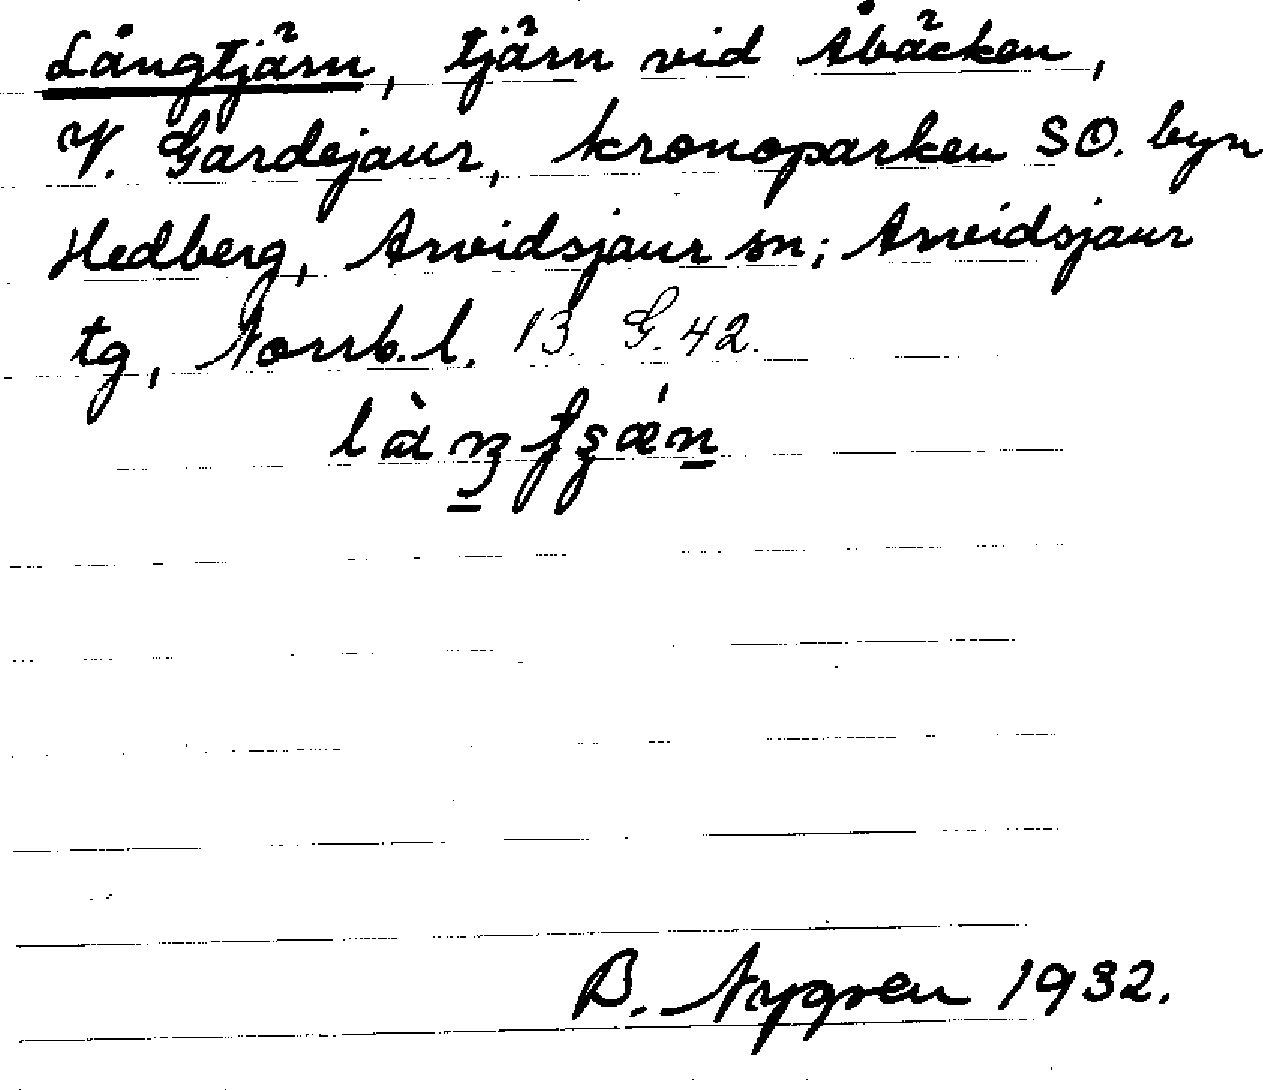 Långtjärn, tjärn vid Åbäcken,
V. Gardejaur, kronoparken SO. byn
Hedberg, Arvidsjaur sn; Arvidsjaur
tg, Norrb. l. 13 G. 42.
B. Nygren 1932.